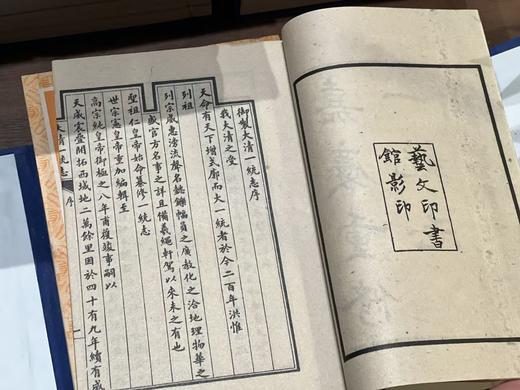 藝文印書
館影印
御製大清一統志序
我大清之受
天命有天下增式廓而大一統者於今二百年洪惟
列祖
列宗威惠滂流聲名懿鑠幅員之廣教化之洽地理物華之
盛官方名事之詳且備羲繩軒駕以來未之有也
聖祖仁皇帝始命纂修一統志
世宗憲皇帝重加編輯至
高宗純皇帝御極之八年甫獲竣事嗣以
天威震疊開拓西域地二萬餘里因於四十有九年續有成
大清一統志 序 一